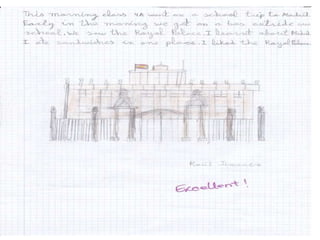 This morning class 4A went on a school trip to Madrid
Early in the morning we got on a bus outside our
school. We saw the Royal Palace. I learnt about Madrid
I ate sandwiches in one place. I liked the Royal Palace.
Excellent!